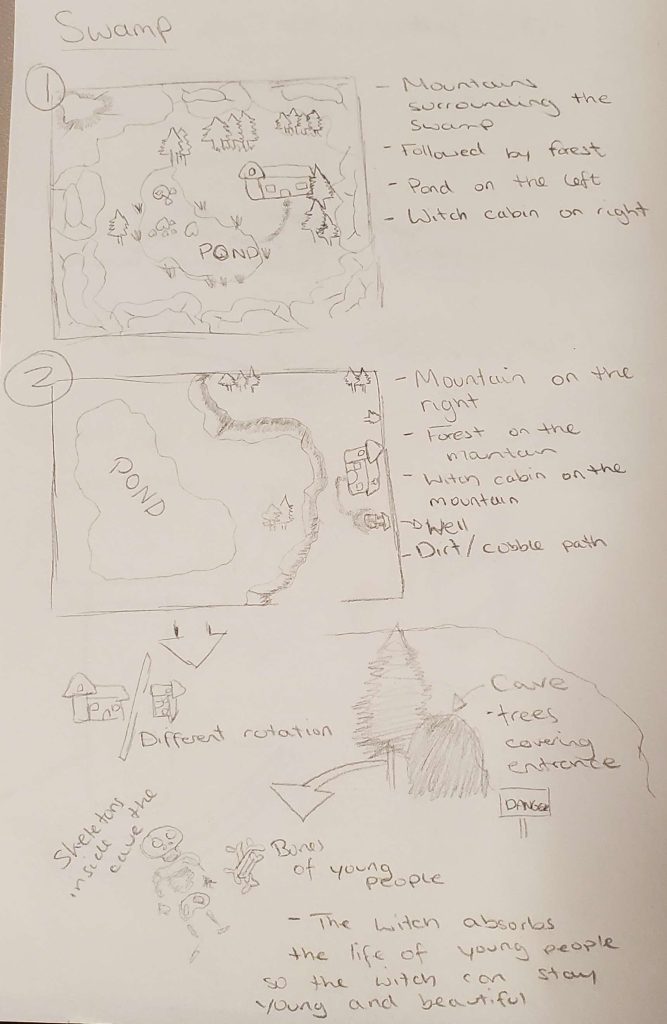 Swamp
1
- Mountains
surrounding the
swamp
- Followed by forest
- Pond on the left
- Witch cabin on right
POND
2
- Mountain on the
right
- Forest on the
mantain
- Witch cabin on the
mountain
→ Well
- Dirt/cobble path
POND
Different rotation
Cave
- trees
covering
entrance
DANGER
Skeletons
inside the
cave
Bones
of young
people
- The witch absorbs
the life of young people
so the witch can stay
young and beautiful